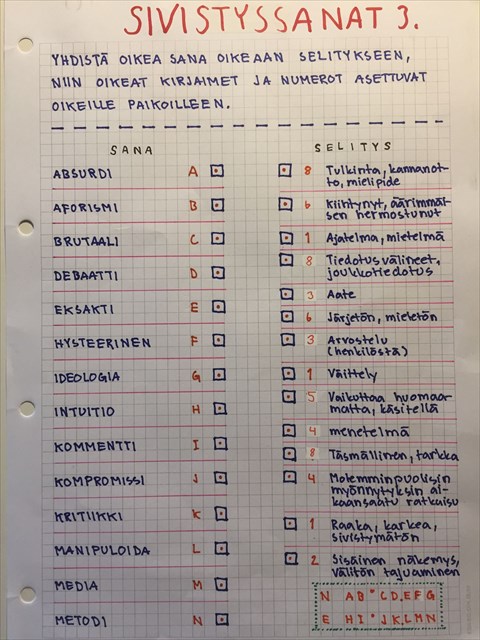 SIVISTYSSANAT 3.
YHDISTÄ OIKEA SANA OIKEAAN SELITYKSEEN,
NIIN OIKEAT KIRJAIMET JA NUMEROT ASETTUVAT
OIKEILLE PAIKOILLEEN.
SANA
ABSURDI A
AFORISMI B
BRUTAALI C
DEBAATTI D
EKSAKTI E
HYSTEERINEN F
IDEOLOGIA G
INTUITIO H
KOMMENTTI I
KOMPROMISSI J
KRITIIKKI K
MANIPULOIDA L
MEDIA M
METODI N
SELITYS
8 Tulkinta, kannanot-
to, mielipide
6 Kiihtynyt, äärimmäi-
sen hermostunut
1 Ajatelma, mietelmä
8 Tiedotusvälineet,
joukkotiedotus
3 Aate
6 Järjetön, mieletön
3 Arvostelu
(henkilöstä)
1 Väittely
5 Vaikuttaa huomaa-
matta, käsitellä
4 menetelmä
8 Täsmällinen, tarkka
4 Molemminpuolisin
myönnytyksin ai-
kaansaatu ratkaisu
1 Raaka, karkea,
sivistymätön
2 Sisäinen näkemys,
välitön tajuaminen
N AB° CD,EFG
E HI° JK,LMN